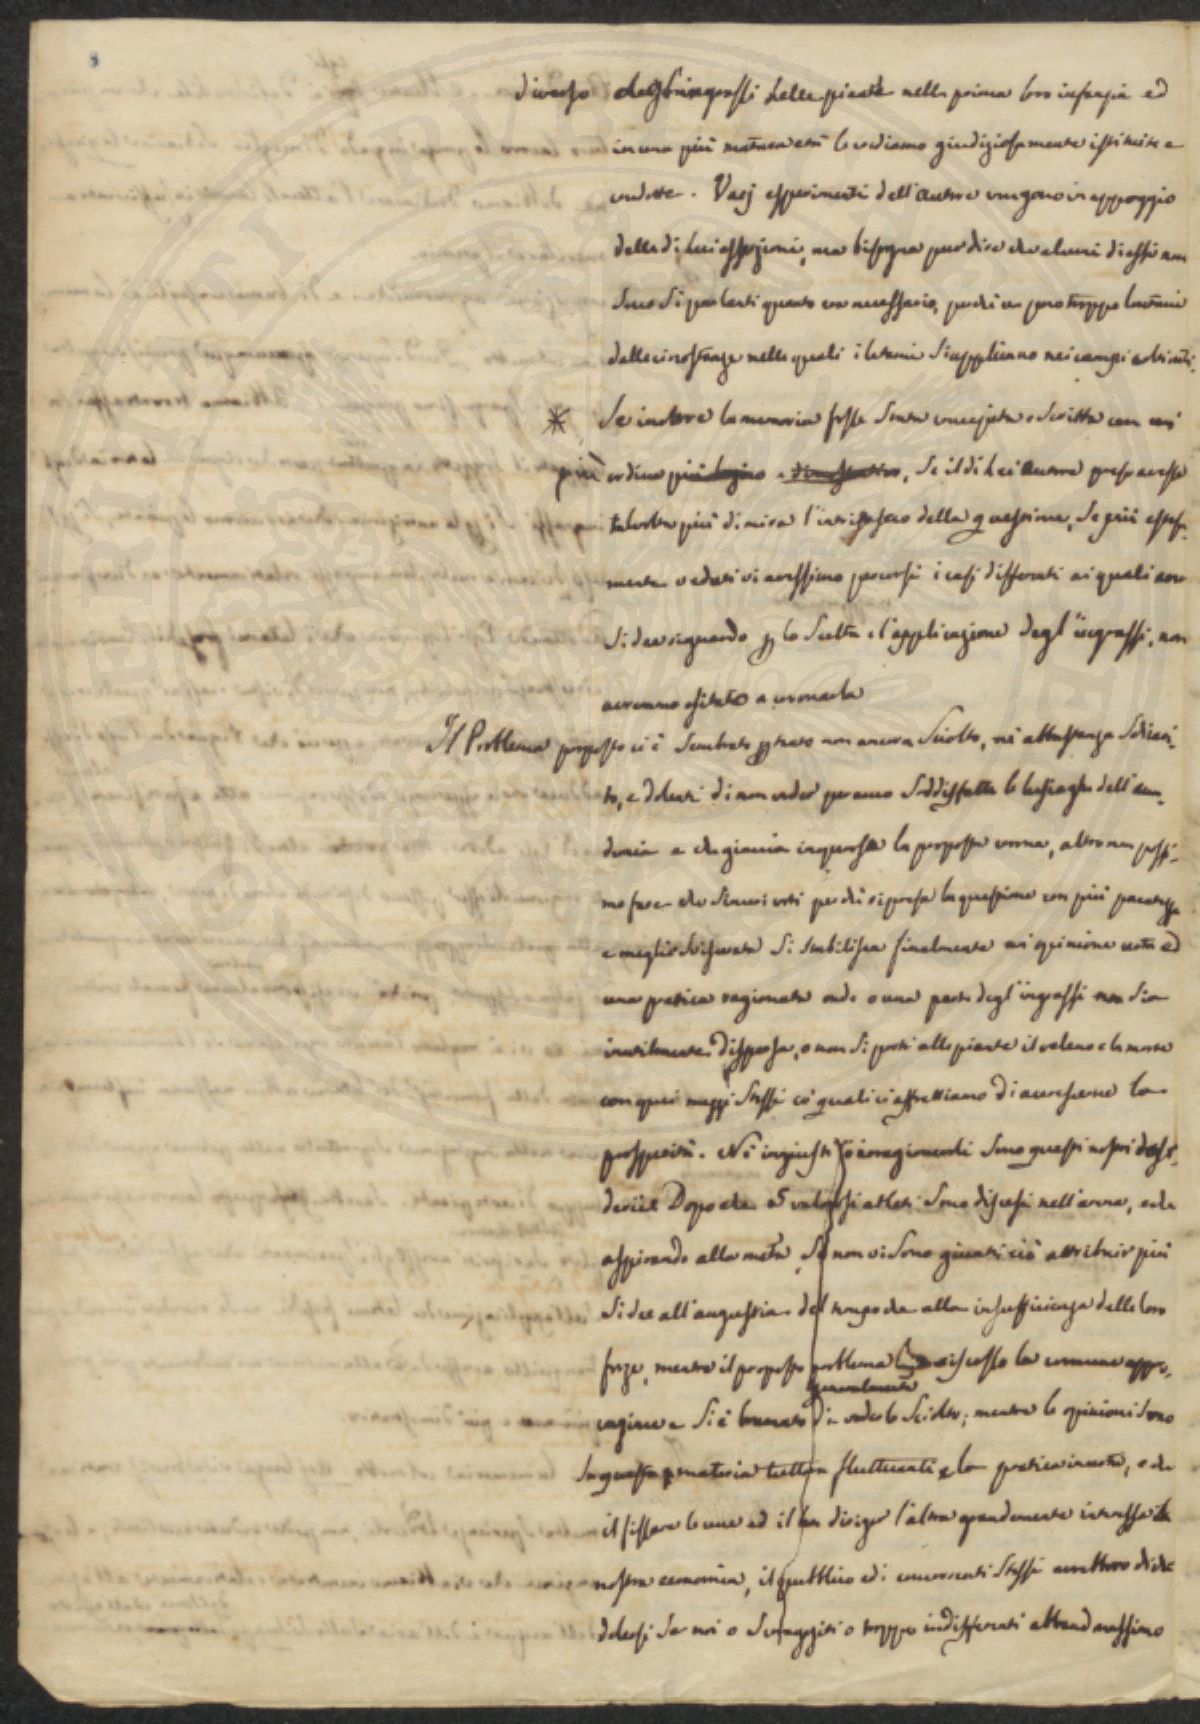 diverso degl'ingrassi delle piante nella prima loro infanzia ed
in una più matura età le vediamo giudiziosamente istituite e
condotte. Varj esperimenti dell'autore vengono in appoggio
delle di lui asserzioni, ma bisogna pur dire che alcuni di essi non
sono sì parlanti quanto era necessario, perchè un poco troppo lontani
dalle circostanze nelle quali i letami si applicano nei campi
* Se inoltre la memoria fosse stata e scritta con
più ordine più e dimostrativo, se il di lei autore preso avesse
talvolta più di mira l'intrinseco della questione, se più
mente veduti vi avessimo percorsi i casi differenti ai quali
si dee riguardo p la scelta e l'applicazione degl'ingrassi, non
avremmo esitato a coronarla
Il Problema proposto ci è sembrato p tanto non ancora sciolto, nè abbastanza
to, e dolenti di non veder per anco soddisfatte le dell'
demia e che giaccia la proposta corona, altro non possi-
mo fare che sinceri voti perchè ripresa la questione con più pacatezza
e meglio si stabilisca finalmente un opinione certa ed
una pratica ragionata onde o una parte degl'ingrassi non sia
inutilmente dispersa, o non si porti alle piante il veleno e la morte
con quei mezzi stessi co' quali ci affrettiamo di accrescerne la
prosperità. Nè ingiusti o irragionevoli sono questi nostri desi-
derii. Dopo che 5 valorosi atleti sono discesi nell'arena, e che
aspirando alla meta, se non vi sono giunti ciò attribuir più
si dee all'angustia del tempo che alla insufficienza delle loro
forze, mentre il proposto problema riscosso la comune appro-
vazione e si è bramato di vederlo sciolto; mentre le opinioni sono
generalmente
in questa materia tuttora fluttuanti e la pratica incerta, e che
il fissare le une ed il dirigere l'altra grandemente interessa la
nostra economia, il pubblico ed i concorrenti stessi avrebbero di che
dolersi se noi o scoraggiti o troppo indifferenti abbandonassimo